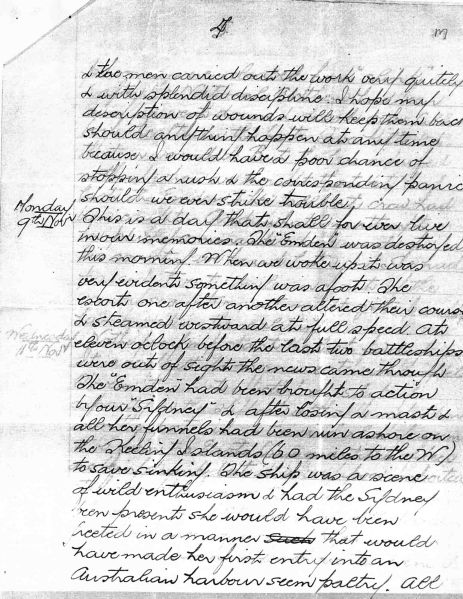 & the men carried out the work very quitely
& with splendid discipline. I hope my
description of wounds will keep them back
should anything happen at any time
because I would have a poor chance of
stopping a rush & the corresponding panic
should we ever strike trouble.
Monday
9th Nov
This is a day that shall for ever live
in our memories. The "Emden" was destroyed
this morning. When we woke up it was
very evident something was afoot. The
escorts one after another altered their course
& steamed westward at full speed. At
eleven oclock before the last two battleships
were out of sight the news came through
The "Emden" had been brought to action
by our "Sydney" & after losing a mast &
all her funnels had been run ashore on
the Keeling Islands (60 miles to the W)
to save sinking. The ship was a scene
of wild enthusiasm & had the Sydney
been present she would have been
greeted in a manner such that would
have made her first entry into an
Australian harbour seem paltry. All
Wednesday
11th Nov